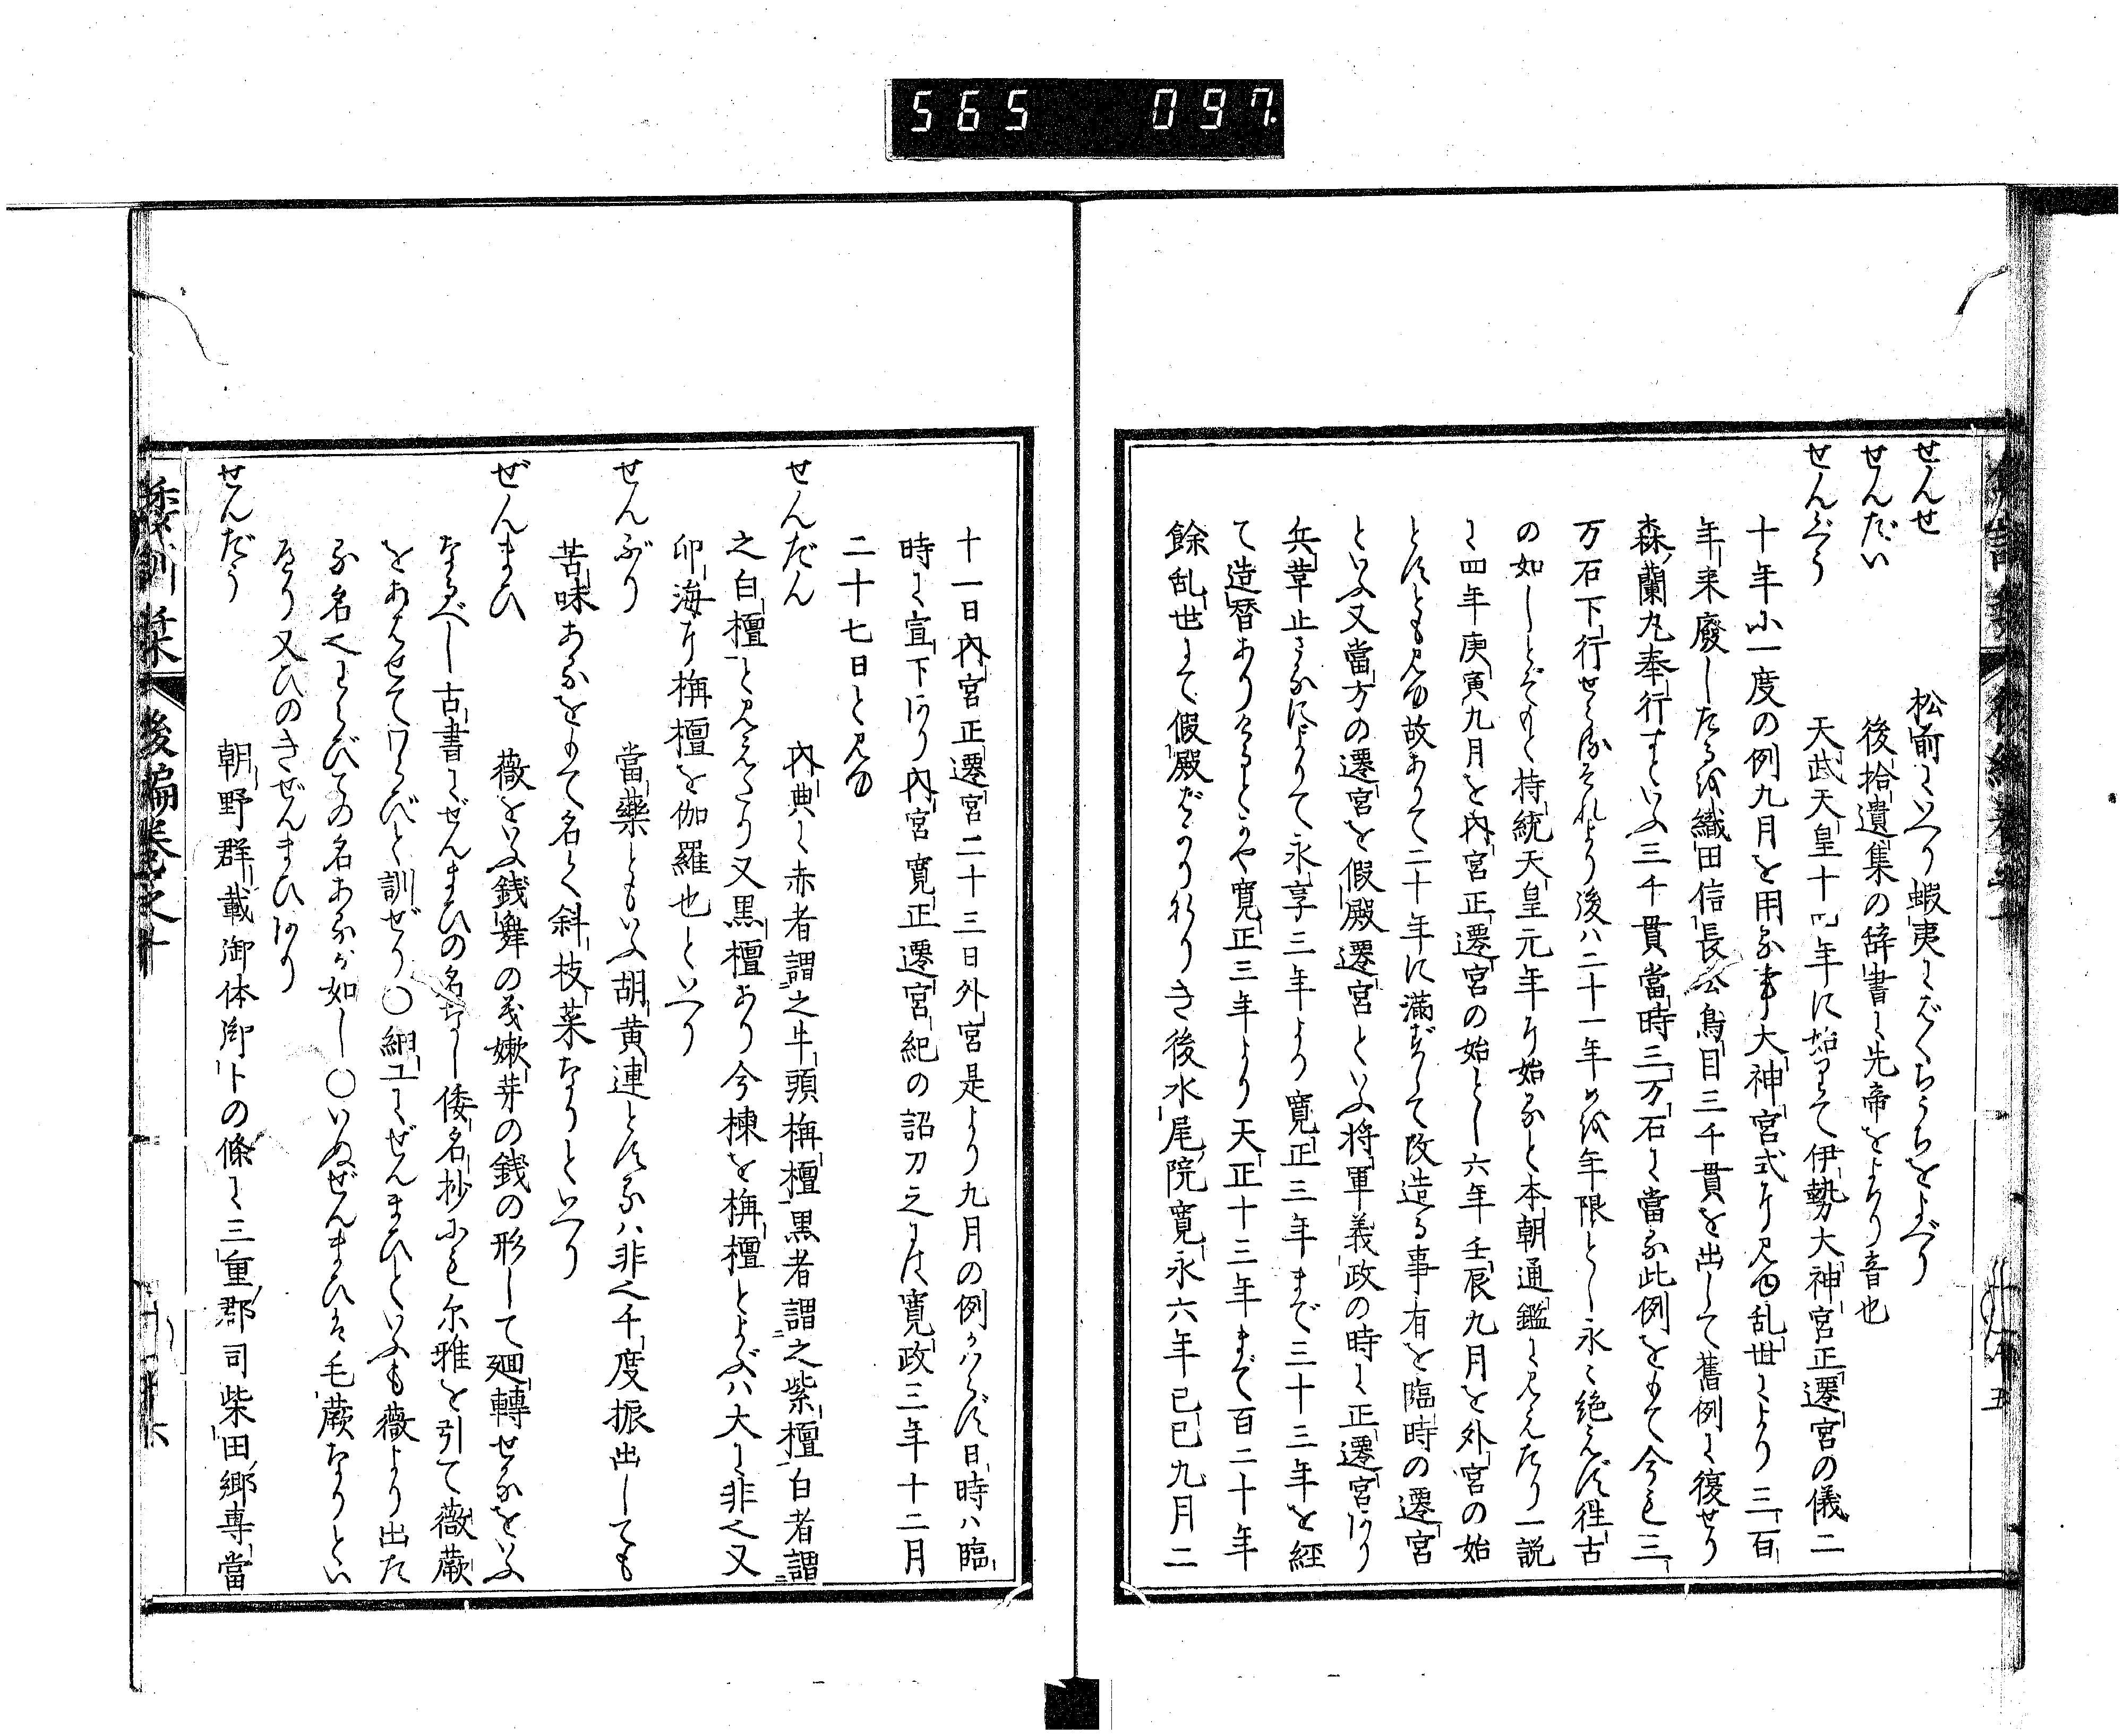 565 097.
せんせ 松前にいへり蝦夷にばくちうちをよべり
せんだい 後拾遺集の辞書に先帝をよめり音也
せんぐう 天武天皇十四年に始りて伊勢大神宮正遷宮の儀二
十年に一度の例九月を用る事大神宮式に見ゆ乱世により三百
年来廢したるを織田信長公鳥目三千貫を出して舊例に復せり
森蘭丸奉行すといふ三千貫當時三万石に當る此例をもて今も三
万石下行せらるそれより後ハ二十一年めを年限とし永く絶えず徃古
の如しとぞもと持統天皇元年に始ると本朝通鑑に見えたり一説
に四年庚寅九月を内宮正遷宮の始とし六年壬辰九月を外宮の始
とすとも見ゆ故ありて二十年に満ずして改造る事有を臨時の遷宮
といふ又當方の遷宮を假殿遷宮といふ将軍義政の時に正遷宮あり
兵革止さるによりて永享三年より寛正三年まで三十三年を経
て造替ありけるとかや寛正三年より天正十三年まで百二十年
餘乱世にて假殿ばかりなりき後水尾院寛永六年己巳九月二
十一日内宮正遷宮二十三日外宮是より九月の例かはらず日時ハ臨
時に宣下あり内宮寛正遷宮紀の詔刀之には寛政三年十二月
二十七日と見ゆ
せんだん 内典に赤者謂之牛頭栴檀黒者謂之紫檀白者謂
之白檀と見えたり又黒檀あり今楝を栴檀とよぶハ大に非也又
印海に栴檀を伽羅也といへり
せんぶり 當薬ともいふ胡黄連とするハ非也千度振出しても
苦味あるをもて名く斜枝菜なりといへり
ぜんまひ 薇をいふ銭舞の義嫩芽の銭の形して廻轉せるをいふ
なるべし古書にぜんまひの名なし倭名抄にも尓雅を引て薇蕨
をあはせてワらびと訓ぜり〇細工にぜんまひといふも薇より出た
る名也わらびての名あるが如し〇いぬぜんまひは毛蕨なりとい
へり又ひのきぜんまひあり
せんだう 朝野群載御体御卜の條に三重郡司柴田郷専當
倭訓栞 後編巻之十